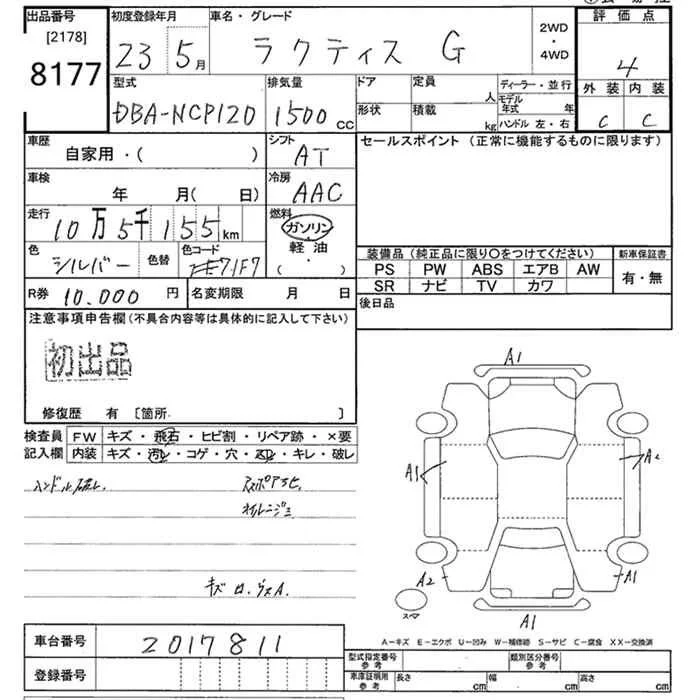 出品番号
[2178]
8177
初度登録年月
23 5月
車名・グレード
ラクティス G
2WD
・
4WD
評価点
4
型式
DBA-NCP120
排気量
1500 CC
ドア
定員
人
形状
積載
kg
ディーラー・並行
モデル年式 年
ハンドル 左・右
外装
内装
C
C
車歴
自家用・( )
シフト
AT
セールスポイント (正常に機能するものに限ります)
車検
年 月( 日)
冷房
AAC
走行
10万5千155km
燃料
ガソリン
軽油
( ・ )
色
シルバー
色替
色コード
装備品 (純正品に限り○をつけてください)
新車保証書
PS PW ABS エアB AW
SR ナビ TV カワ
有・無
R券 10.000 円
名変期限 月 日
後日品
注意事項申告欄 (不具合内容等は具体的に記入して下さい)
初出品
修復歴 有 [箇所. ]
検査員
記入欄
FW キズ・飛石・ヒビ割・リペア跡・×要
内装 キズ・汚レ・コゲ・穴・スレ・キレ・破レ
A1
A1
A2
A2
A1
スペア
A1
A−キズ E−エクボ U−凹み W−補修跡 S−サビ C−腐食 XX−交換済
車台番号
2017811
登録番号
型式指定番号
参考
類別区分番号
参考
車庫証明用
参考
長さ cm
幅 cm
高さ cm